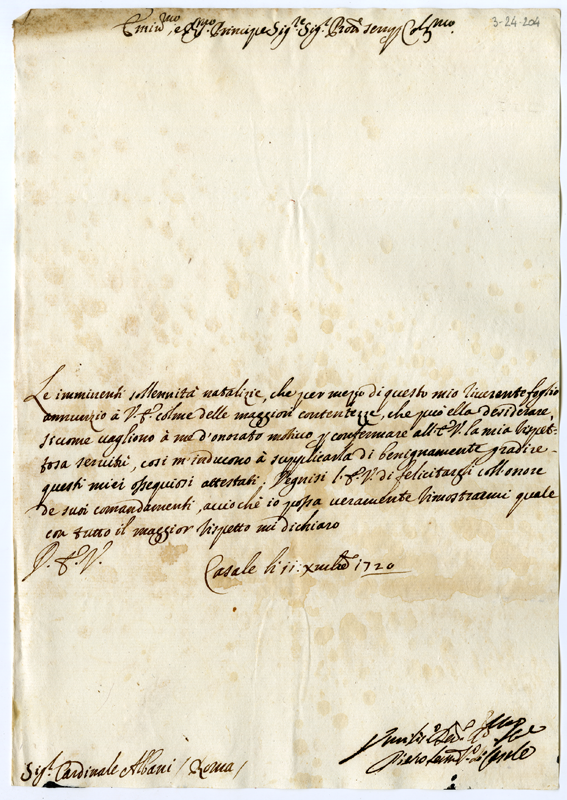 3-24-204
Emin.mo, e Principe Sig.re Sig.r Pron.e Colmo.
Le imminenti sollennità natalizie, che per mezzo di questo mio riverente foglio
annunzio à V. E. colme delle maggiori contentezze, che può ella desiderare,
sicome vagliono à me d'onorato motivo p confermare all'E. V. la mia rispet-
tosa servitù, così m'inducono à supplicarla di benignamente gradire
questi miei ossequiosi attestati. Degnisi l'E. V. di felicitarmi coll'onore
de suoi comandamenti, acciochè io possa veramente rimostrarmi quale
con tutto il maggior rispetto mi dichiaro
D. E. V.
Casale li 11: Xmbre 1720
Sig.r Cardinale Albani / Roma /